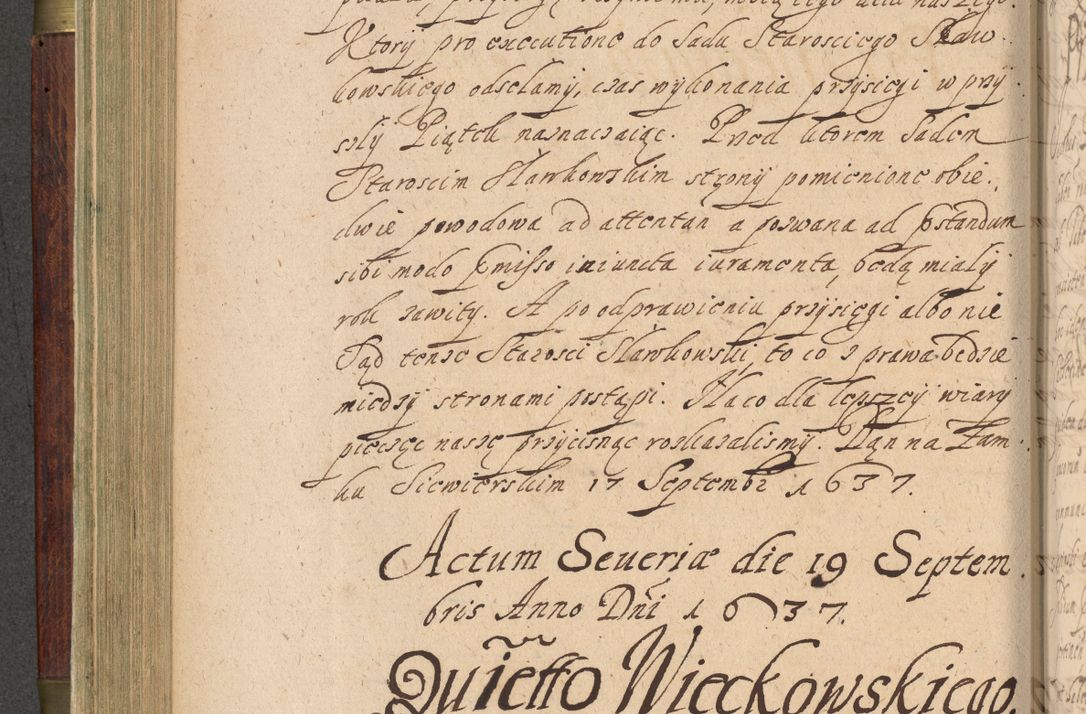 Ktory pro executione do Sadu Starosciego Sław
kowskiego odsełamy, czas wykonania przysięgi w przy
szły Piątek naznaczaiąc. Przed ktorem Sadem
Staroscim Sławkowskim strony pomienione obie
dwie powodowa ad attentan̄ a pozwana ad p̄standum
sibi modo p̱misso iniuncta iuramenta, będą miały
rok zawity. A po odprawieniu przysięgi albo nie
Sąd tenże Starosci Sławkowski, to co z prawa będzie
miedzy stronami postąpi. Na co dla lepszey wiary
pieczęc nasze przycisnąc roskazalismy. Dan na Zam
ku Siewierskim 17 Septembr 1637.
Actum Seueriæ die 19 Septem
bris Anno Dn̄i 1637.
Quietto Wieckowskiego.